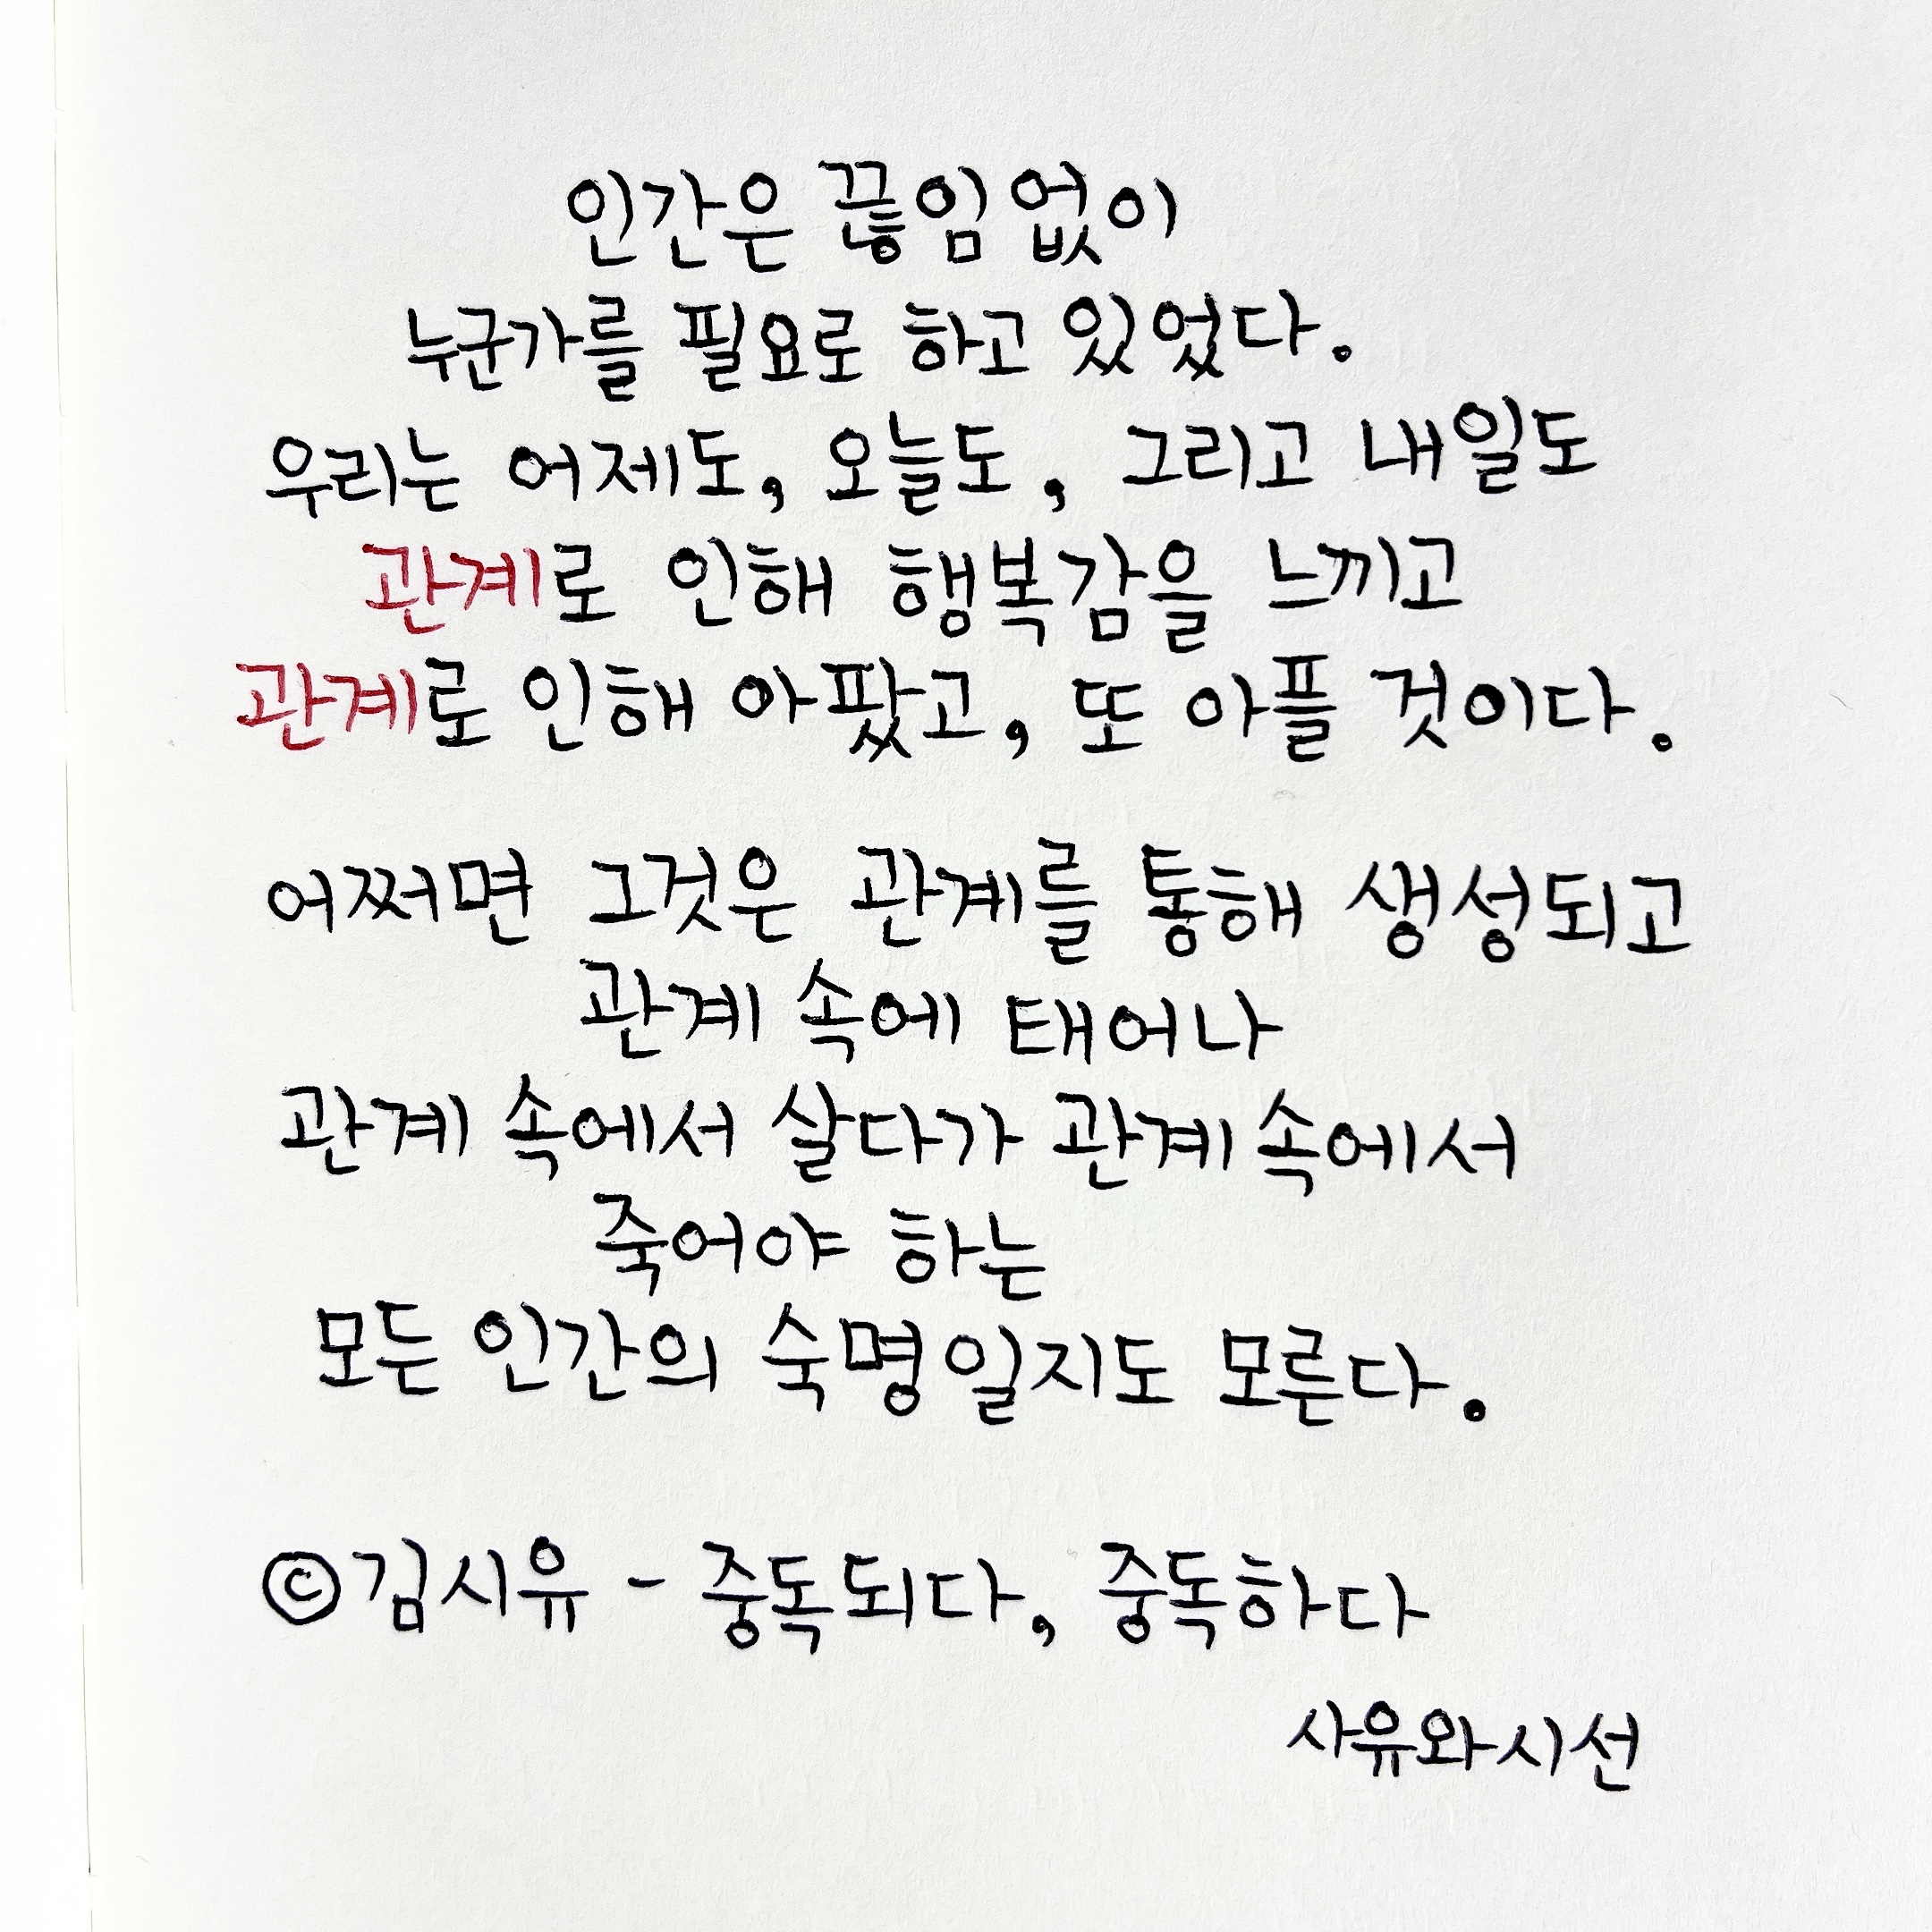 인간은 끊임없이
누군가를 필요로 하고 있었다.
우리는 어제도, 오늘도, 그리고 내일도
관계로 인해 행복감을 느끼고
관계로 인해 아팠고, 또 아플 것이다.
어쩌면 그것은 관계를 통해 생성되고
관계 속에 태어나
관계 속에서 살다가 관계 속에서
죽어야 하는
모든 인간의 숙명일지도 모른다.
©김시유 - 중독되다, 중독하다
사유와시선